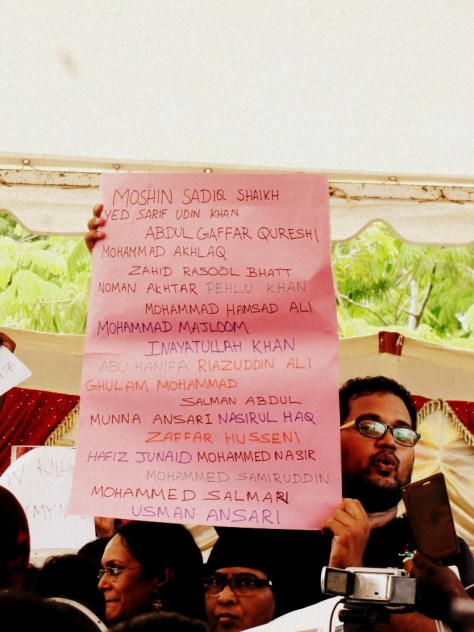 MOSHIN SADIQ SHAIKH
YED SARIF UDIN KHAN
ABDUL GAFFAR QURESHI
MOHAMMAD AKHLAQ
ZAHID RASOOL BHATT
NOMAN AKHTAR PEHLU KHAN
MOHAMMAD HAMSAD ALI
MOHAMMAD MAJLOOM
INAYATULLAH KHAN
ABU HANIFA RIAZUDDIN ALI
GHULAM MOHAMMAD
SALMAN ABDUL
MUNNA ANSARI NASIRUL HAQ
ZAFFAR HUSSENI
HAFIZ JUNAID MOHAMMED NASIR
MOHAMMED SAMIRUDDIN
MOHAMMED SALMARI
USMAN ANSARI